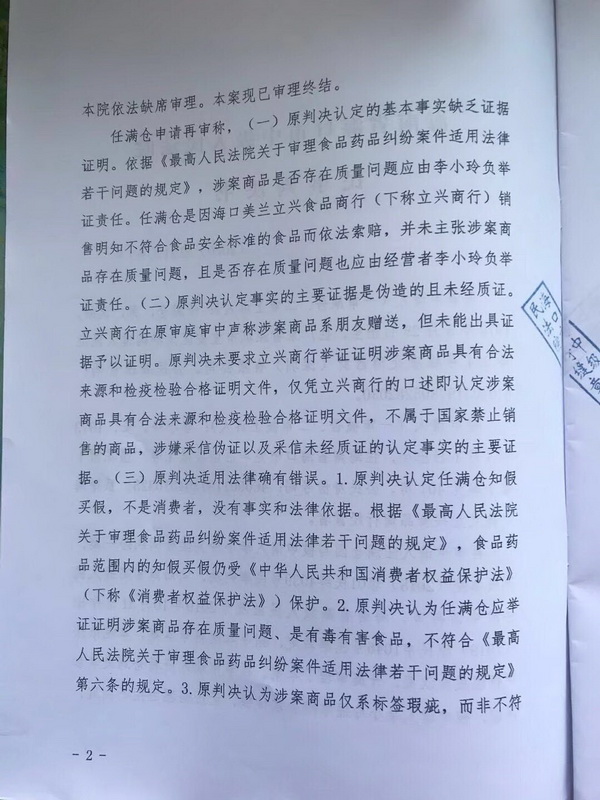 本院依法缺席审理。本案现已审理终结。
任满仓申请再审称，（一）原判决认定的基本事实缺乏证据
证明。依据《最高人民法院关于审理食品药品纠纷案件适用法律
若干问题的规定》，涉案商品是否存在质量问题应由李小玲负举
证责任。任满仓是因海口美兰立兴食品商行（下称立兴商行）销
售明知不符合食品安全标准的食品而依法索赔，并未主张涉案商
品存在质量问题，且是否存在质量问题也应由经营者李小玲负举
证责任。（二）原判决认定事实的主要证据是伪造的且未经质证。
立兴商行在原审庭审中声称涉案商品系朋友赠送，但未能出具证
据予以证明。原判决未要求立兴商行举证证明涉案商品具有合法
来源和检疫检验合格证明文件，仅凭立兴商行的口述即认定涉案
商品具有合法来源和检疫检验合格证明文件，不属于国家禁止销
售的商品，涉嫌采信伪证以及采信未经质证的认定事实的主要证
据。（三）原判决适用法律确有错误。1.原判决认定任满仓知假
买假，不是消费者，没有事实和法律依据。根据《最高人民法院
关于审理食品药品纠纷案件适用法律若干问题的规定》，食品药
品范围内的知假买假仍受《中华人民共和国消费者权益保护法》
（下称《消费者权益保护法》）保护。2.原判决认为任满仓应举
证证明涉案商品存在质量问题、是有毒有害食品，不符合《最高
人民法院关于审理食品药品纠纷案件适用法律若干问题的规定》
第六条的规定。3.原判决认为涉案商品仅系标签瑕疵，而非不符
- 2 -